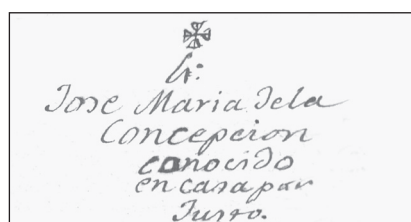 Jose Maria dela
Concepcion
conocido
en casa por
Justo.